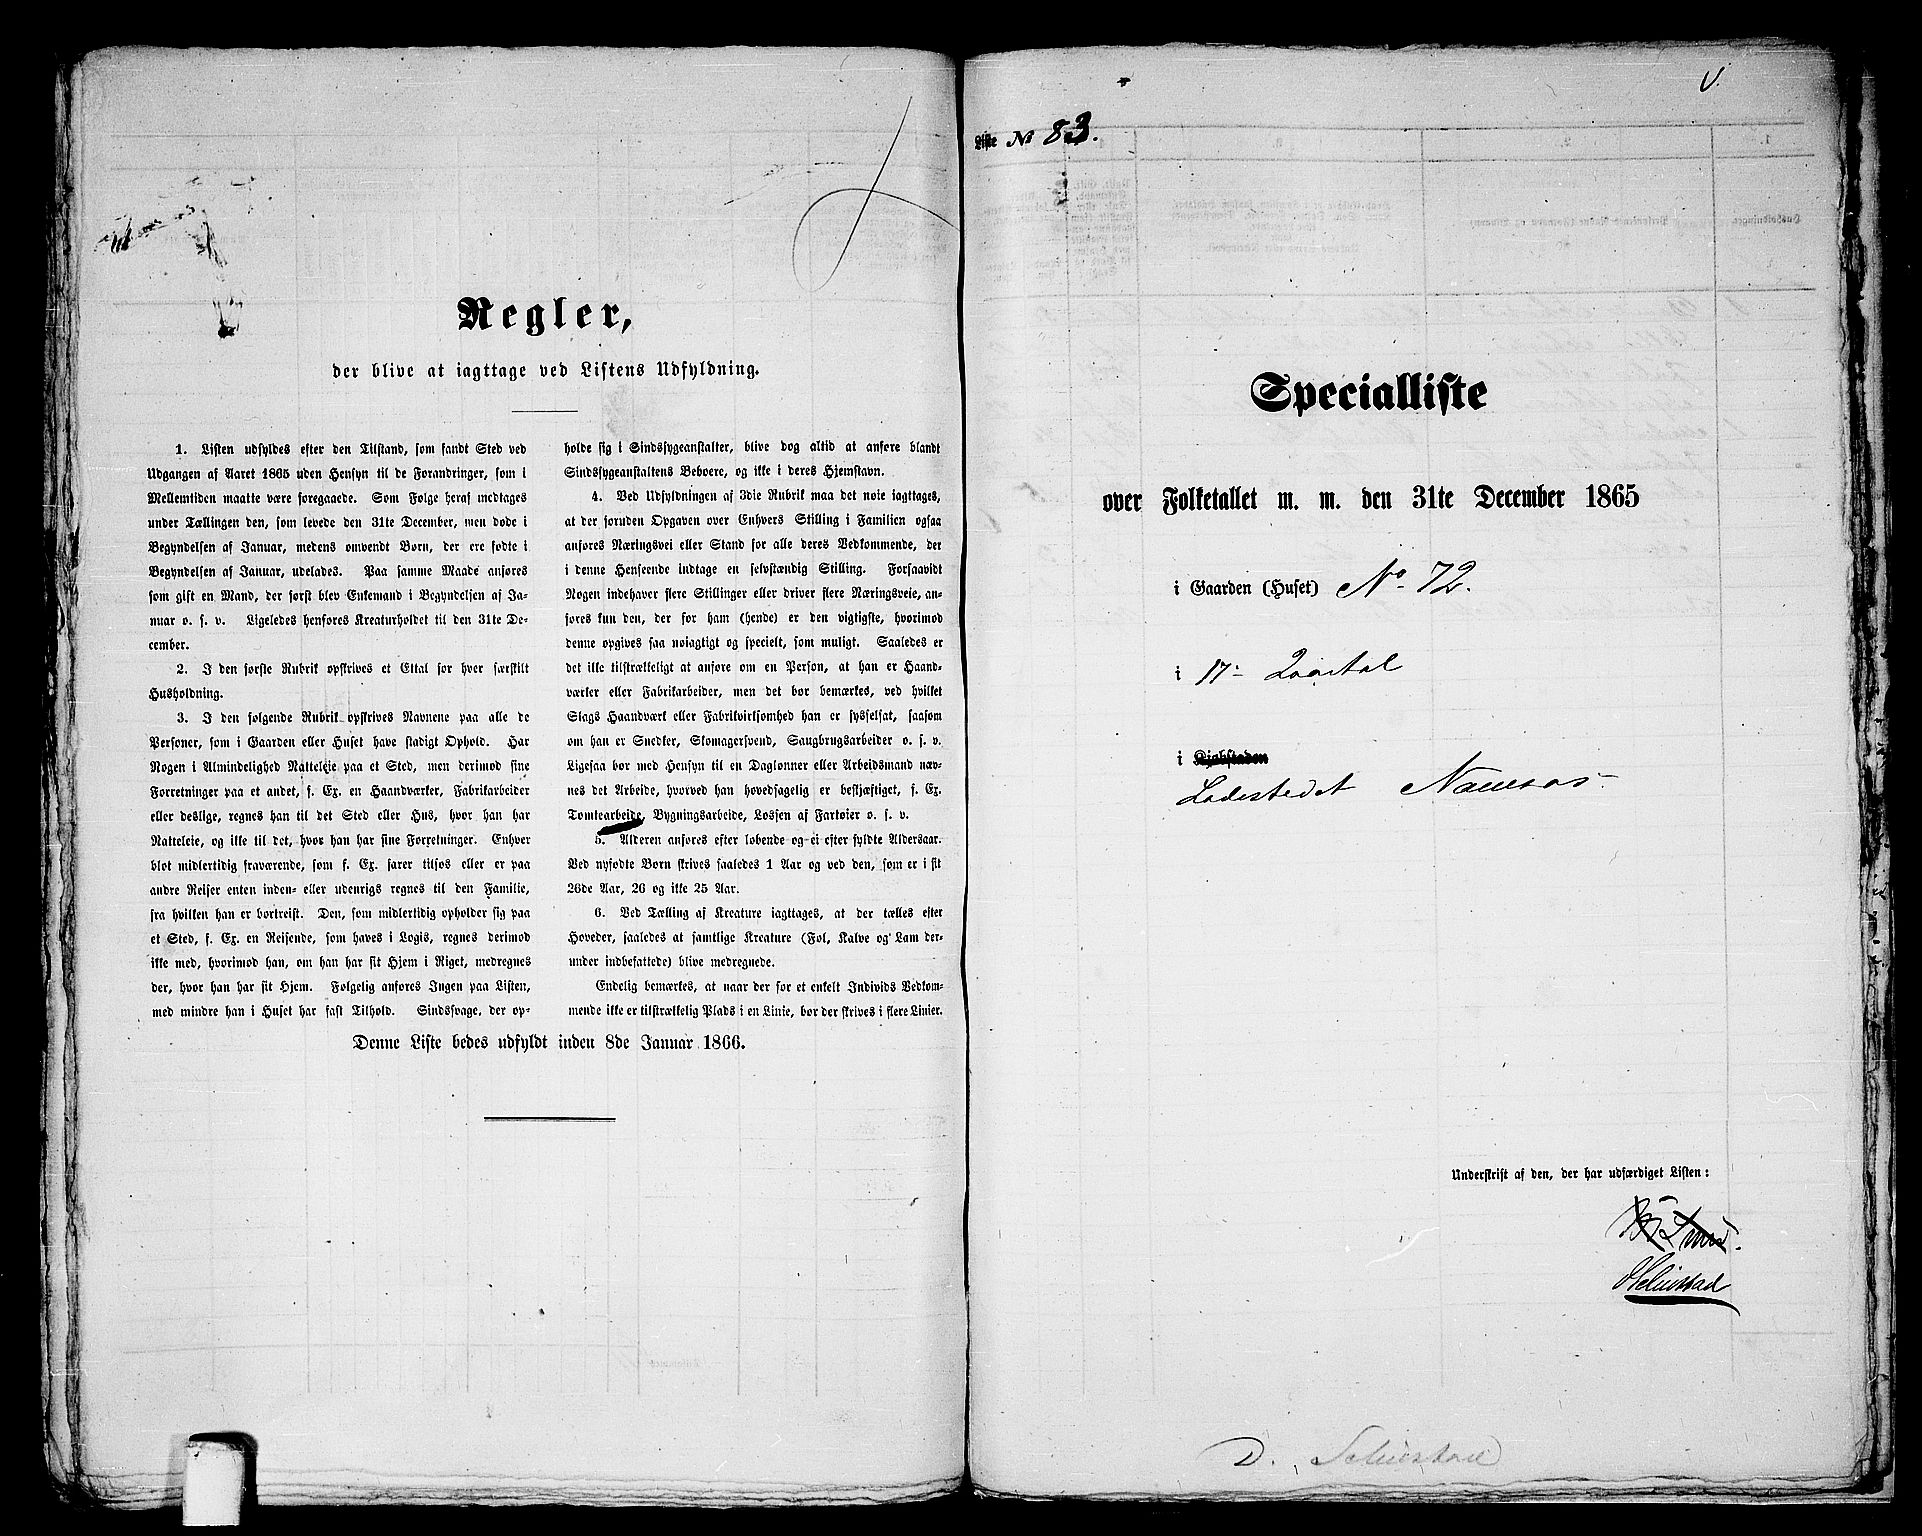 Regler,
der blive at iagttage ved Listens Udfyldning.
1. Listen udfyldes efter den Tilstand, som fandt Sted ved
Udgangen af Aaret 1865 uden Hensyn til de Forandringer, som i
Mellemtiden maatte være foregaaede. Som Følge heraf medtages
under Tællingen den, som levede den 31te December, men døde i
Begyndelsen af Januar, medens omvendt Børn, der ere fødte i
Begyndelsen af Januar, udelades. Paa samme Maade anføres
som gift en Mand, der først blev Enkemand i Begyndelsen af Ja-
nuar o. s. v. Ligeledes henføres Kreaturholdet til den 31te De-
cember.
2. I den første Rubrik opskrives et Ettal for hver særskilt
Husholdning.
3. I den følgende Rubrik opskrives Navnene paa alle de
Personer, som i Gaarden eller Huset have stadigt Ophold. Har
Nogen i Almindelighed Natteleie paa et Sted, men derimod sine
Forretninger paa et andet, f. Ex. en Haandværker, Fabrikarbeider
eller deslige, regnes han til det Sted eller Hus, hvor han har
Natteleie, og ikke til det, hvor han har sine Forretninger. Enhver
blot midlertidig fraværende, som f. Ex. farer tilsøs eller er paa
andre Reiser enten inden- eller udenrigs regnes til den Familie,
fra hvilken han er bortreist. Den, som midlertidig opholder sig paa
et Sted, f. Ex. en Reisende, som haves i Logis, regnes derimod
ikke med, hvorimod han, om han har sit Hjem i Riget, medregnes
der, hvor han har sit Hjem. Følgelig anføres Ingen paa Listen,
med mindre han i Huset har fast Tilhold. Sindssvage, der op-
holde sig i Sindssygeanstalter, blive dog altid at anføre blandt
Sindssygeanstaltens Beboere, og ikke i deres Hjemstavn.
4. Ved Udfyldningen af 3die Rubrik maa det nøie iagttages,
at der foruden Opgaven over Enhvers Stilling i Familien ogsaa
anføres Næringsvei eller Stand for alle deres Vedkommende, der
i denne Henseende indtage en selvstændig Stilling. Forsaavidt
Nogen indehaver flere Stillinger eller driver flere Næringsveie, an-
føres kun den, der for ham (hende) er den vigtigste, hvorimod
denne opgives saa nøiagtigt og specielt, som muligt. Saaledes er
det ikke tilstrækkeligt at anføre om en Person, at han er Haand-
værker eller Fabrikarbeider, men det bør bemærkes, ved hvilket
Slags Haandværk eller Fabrikvirksomhed han er sysselsat, saasom
om han er Snedker, Skomagersvend, Saugbrugsarbeider o. s. v.
Ligesaa bør med Hensyn til en Daglønner eller Arbeidsmand næv-
nes det Arbeide, hvorved han hovedsagelig er beskjæftiget, f. Ex.
Tomtearbeide, Bygningsarbeide, Lossen af Fartøier o. s. v.
5. Alderen anføres efter løbende og ei efter fyldte Aldersaar.
Ved nyfødte Børn skrives saaledes 1 Aar og ved den, som er i sit
26de Aar, 26 og ikke 25 Aar.
6. Ved Tælling af Kreature iagttages, at der tælles efter
Hoveder, saaledes at samtlige Kreature (Føl, Kalve og Lam der-
under indbefattede) blive medregnede.
Endelig bemærkes, at naar der for et enkelt Individs Vedkom-
mende ikke er tilstrækkelig Plads i en Linie, bør der skrives i flere Linier.
Denne Liste bedes udfyldt inden 8de Januar 1866.
Liste № 83.
Specialliste
over Folketallet m. m. den 31te December 1865
i Gaarden (Huset) No 72.
i 17- Qvartal
i Kjøbstaden
Ladestedet Namsos
Underskrift af den, der har udfærdiget Listen: